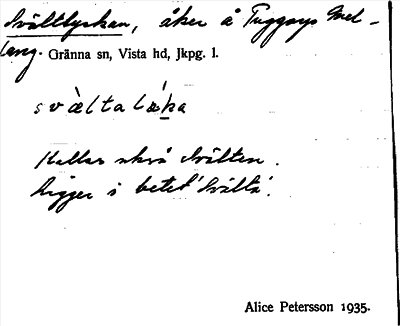 Svältlyckan, åker å Tuggarps Mel-
lang. Gränna sn, Vista hd, Jkpg. l.
svàltalǽka
Kallas också Svälten.
Ligger i betet 'Svälta'.
Alice Petersson 1935.